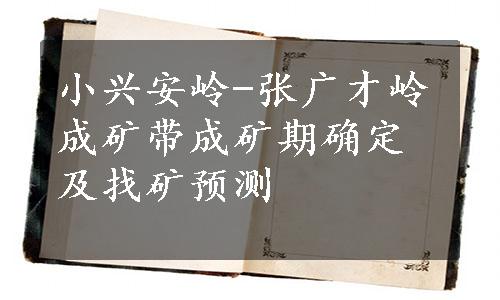 小兴安岭-张广才岭
成矿带成矿期确定
及找矿预测